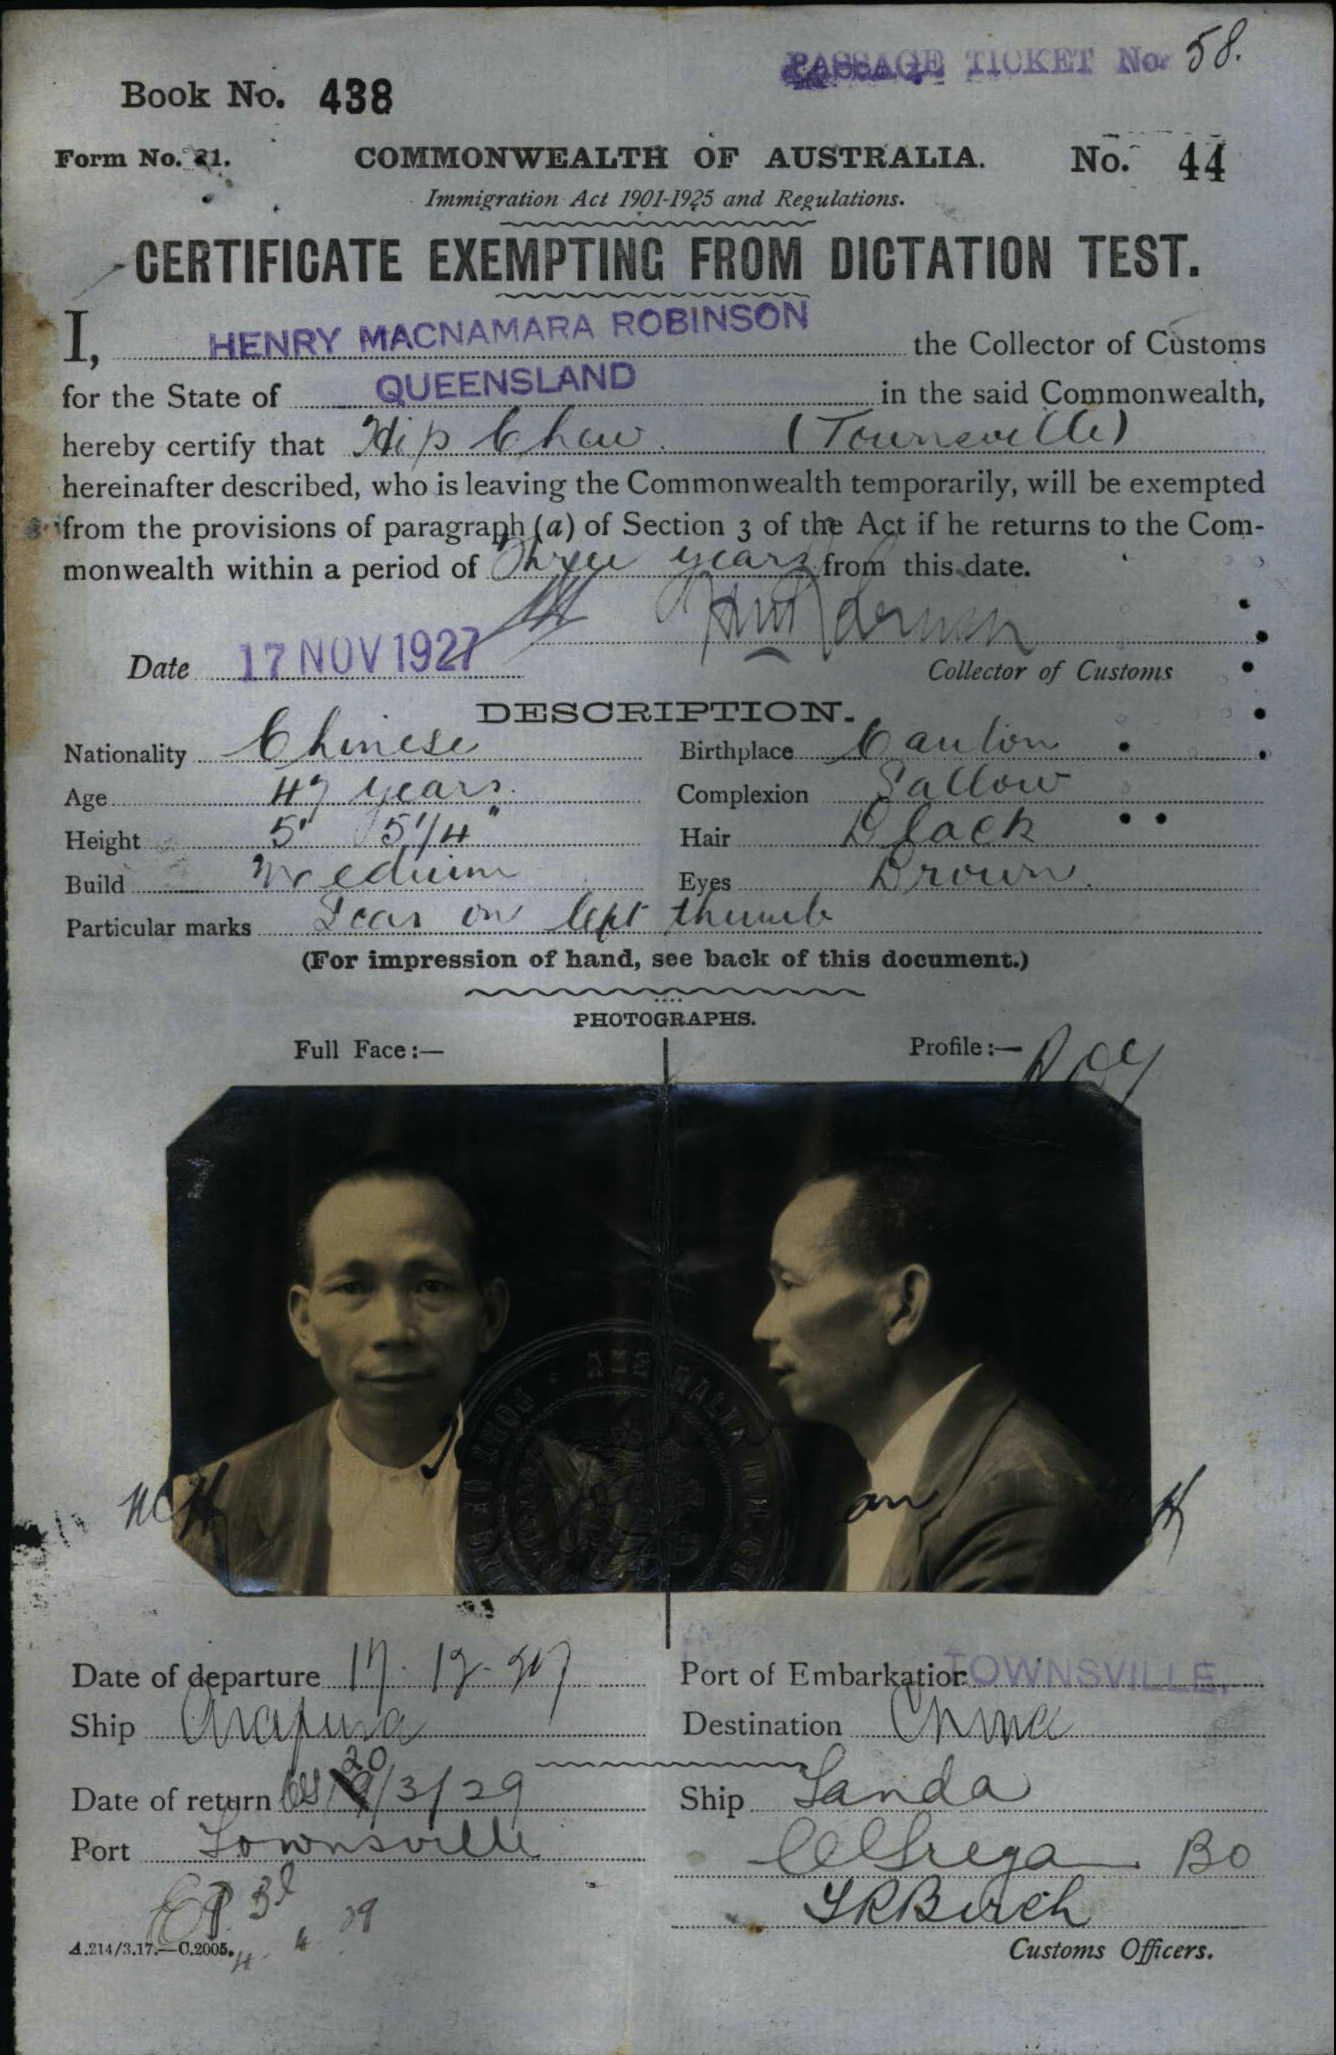 PASSAGE TICKET No. 58.
Book No. 438
Form No. 21.
COMMONWEALTH OF AUSTRALIA.
No. 44
Immigration Act 1901-1925 and Regulations.
CERTIFICATE EXEMPTING FROM DICTATION TEST.
I, HENRY MACNAMARA ROBINSON the Collector of Customs
for the State of QUEENSLAND in the said Commonwealth,
hereby certify that Hip Chow. (Townsville)
hereinafter described, who is leaving the Commonwealth temporarily, will be exempted
from the provisions of paragraph (a) of Section 3 of the Act if he returns to the Com-
monwealth within a period of Three years from this date.
Date 17 NOV 1927
Collector of Customs
DESCRIPTION.
Nationality Chinese
Birthplace Canton
Age 47 years.
Complexion Sallow
Height 5' 5 1/4"
Hair Black
Build Medium
Eyes Brown.
Particular marks Scar on left thumb
(For impression of hand, see back of this document.)
PHOTOGRAPHS.
Full Face:—
Profile:—
Date of departure 17-12-27
Port of Embarkation TOWNSVILLE.
Ship Arafura
Destination China
Date of return 20/3/29
Ship Tanda
Port Townsville
BO
Birch
A.214/3.17.—C.2005.
Customs Officers.